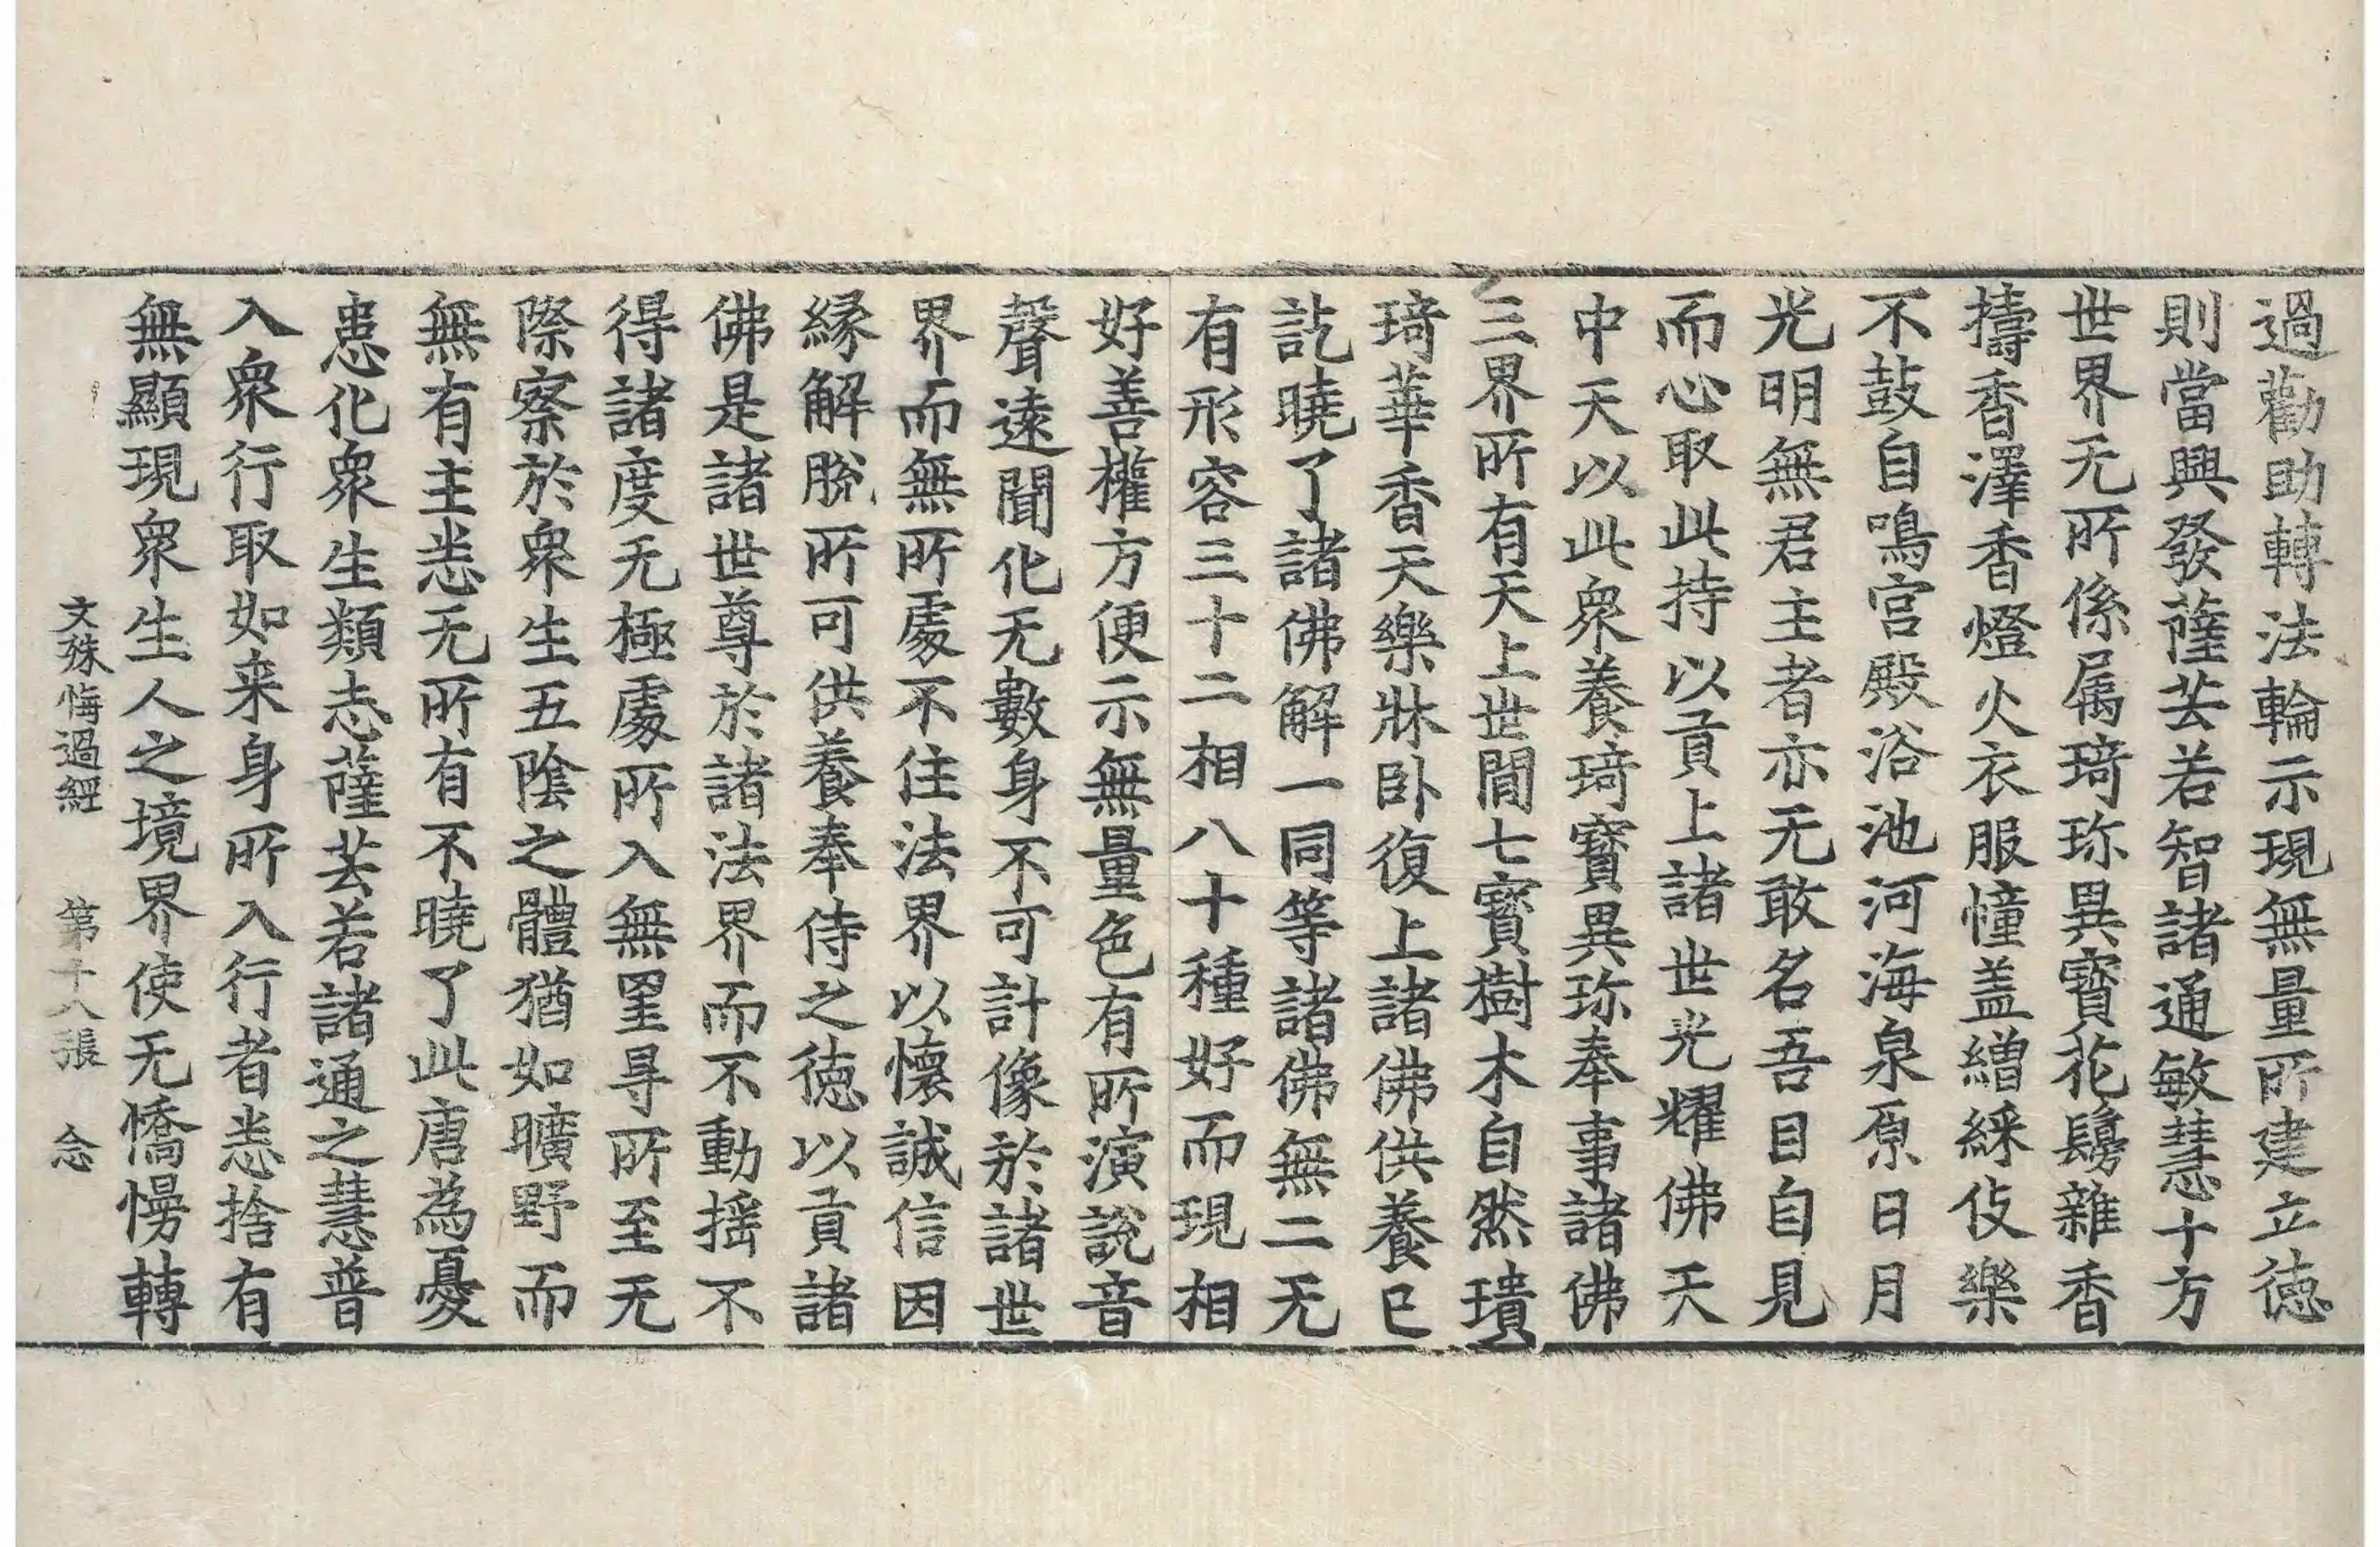 過勸助轉法輪示現無量所建立徳
則當興發薩芸若智諸通敏慧十方
世界无所係属琦珎異寳花鬘雜香
擣香澤香燈火衣服幢盖繒綵伎樂
不鼓自鳴宫殿浴池河海泉原日月
光明無君主者亦无敢名吾目自見
而心取此持以貢上諸世光耀佛天
中天以此衆養琦寳異珎奉事諸佛
三界所有天上世間七寳樹木自然璝
琦華香天樂牀卧復上諸佛供養已
訖曉了諸佛解一同等諸佛無二无
有形容三十二相八十種好而現相
好善權方便示無量色有所演説音
聲逺聞化无數身不可計像於諸世
界而無所處不住法界以懷誠信因
縁解脫所可供養奉侍之徳以貢諸
佛是諸世尊於諸法界而不動揺不
得諸度无極處所入無罣㝵所至无
際察於衆生五陰之體猶如曠野而
無有主恙无所有不曉了此唐為憂
患化衆生類志薩芸若諸通之慧普
入衆行取如来身所入行者恙捨有
無顯現衆生人之境界使无憍慢轉
文殊悔過經 第十八張 念